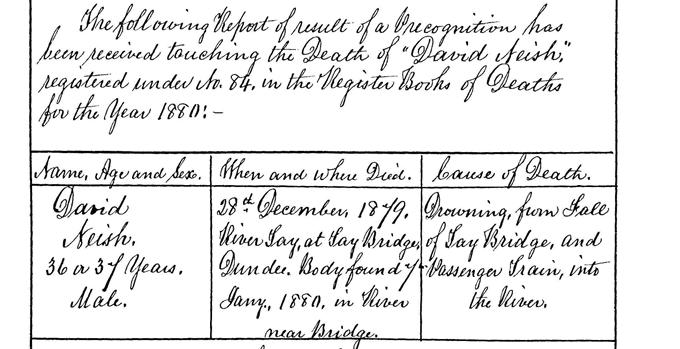 The following Report of result of a Precognition has
been received touching the Death of "David Neish",
registered under No. 84, in the Register Books of Deaths
for the Year 1880:-
Name, Age and Sex.
When and where Died.
Cause of Death.
David
Neish.
36 or 37 Years.
Male.
28th December, 1879.
River Tay, at Tay Bridge,
Dundee. Body found 7
Jany., 1880, in River
near Bridge.
Drowning, from Fall
of Tay Bridge, and
Passenger Train, into
the River.